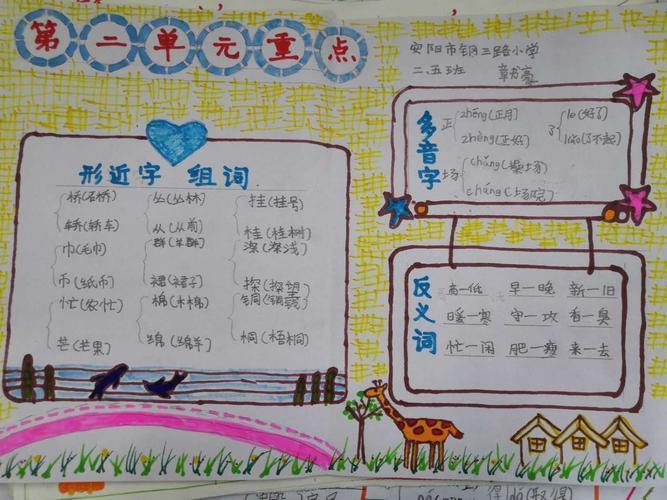 第二单元重点
安阳市钢三路小学
二.五班 章书豪
形近字 组词
桥(石桥) 丛(丛林) 挂(挂号)
轿(轿车) 从(从前) 桂(桂树)
巾(毛巾) 群(羊群) 深(深浅)
币(纸币) 裙(裙子) 探(探望)
忙(农忙) 棉(木棉) 铜(铜
芒(芒果) 绵(绵羊) 桐(梧桐)
多音字
正 zhēng(正月) 了 le(好了)
zhèng(正好) liǎo(了不起)
场 chǎng(操场)
cháng(场院)
反义词
高—低 早—晚 新—旧
暖—寒 守—攻 香—臭
忙—闲 肥—瘦 来—去